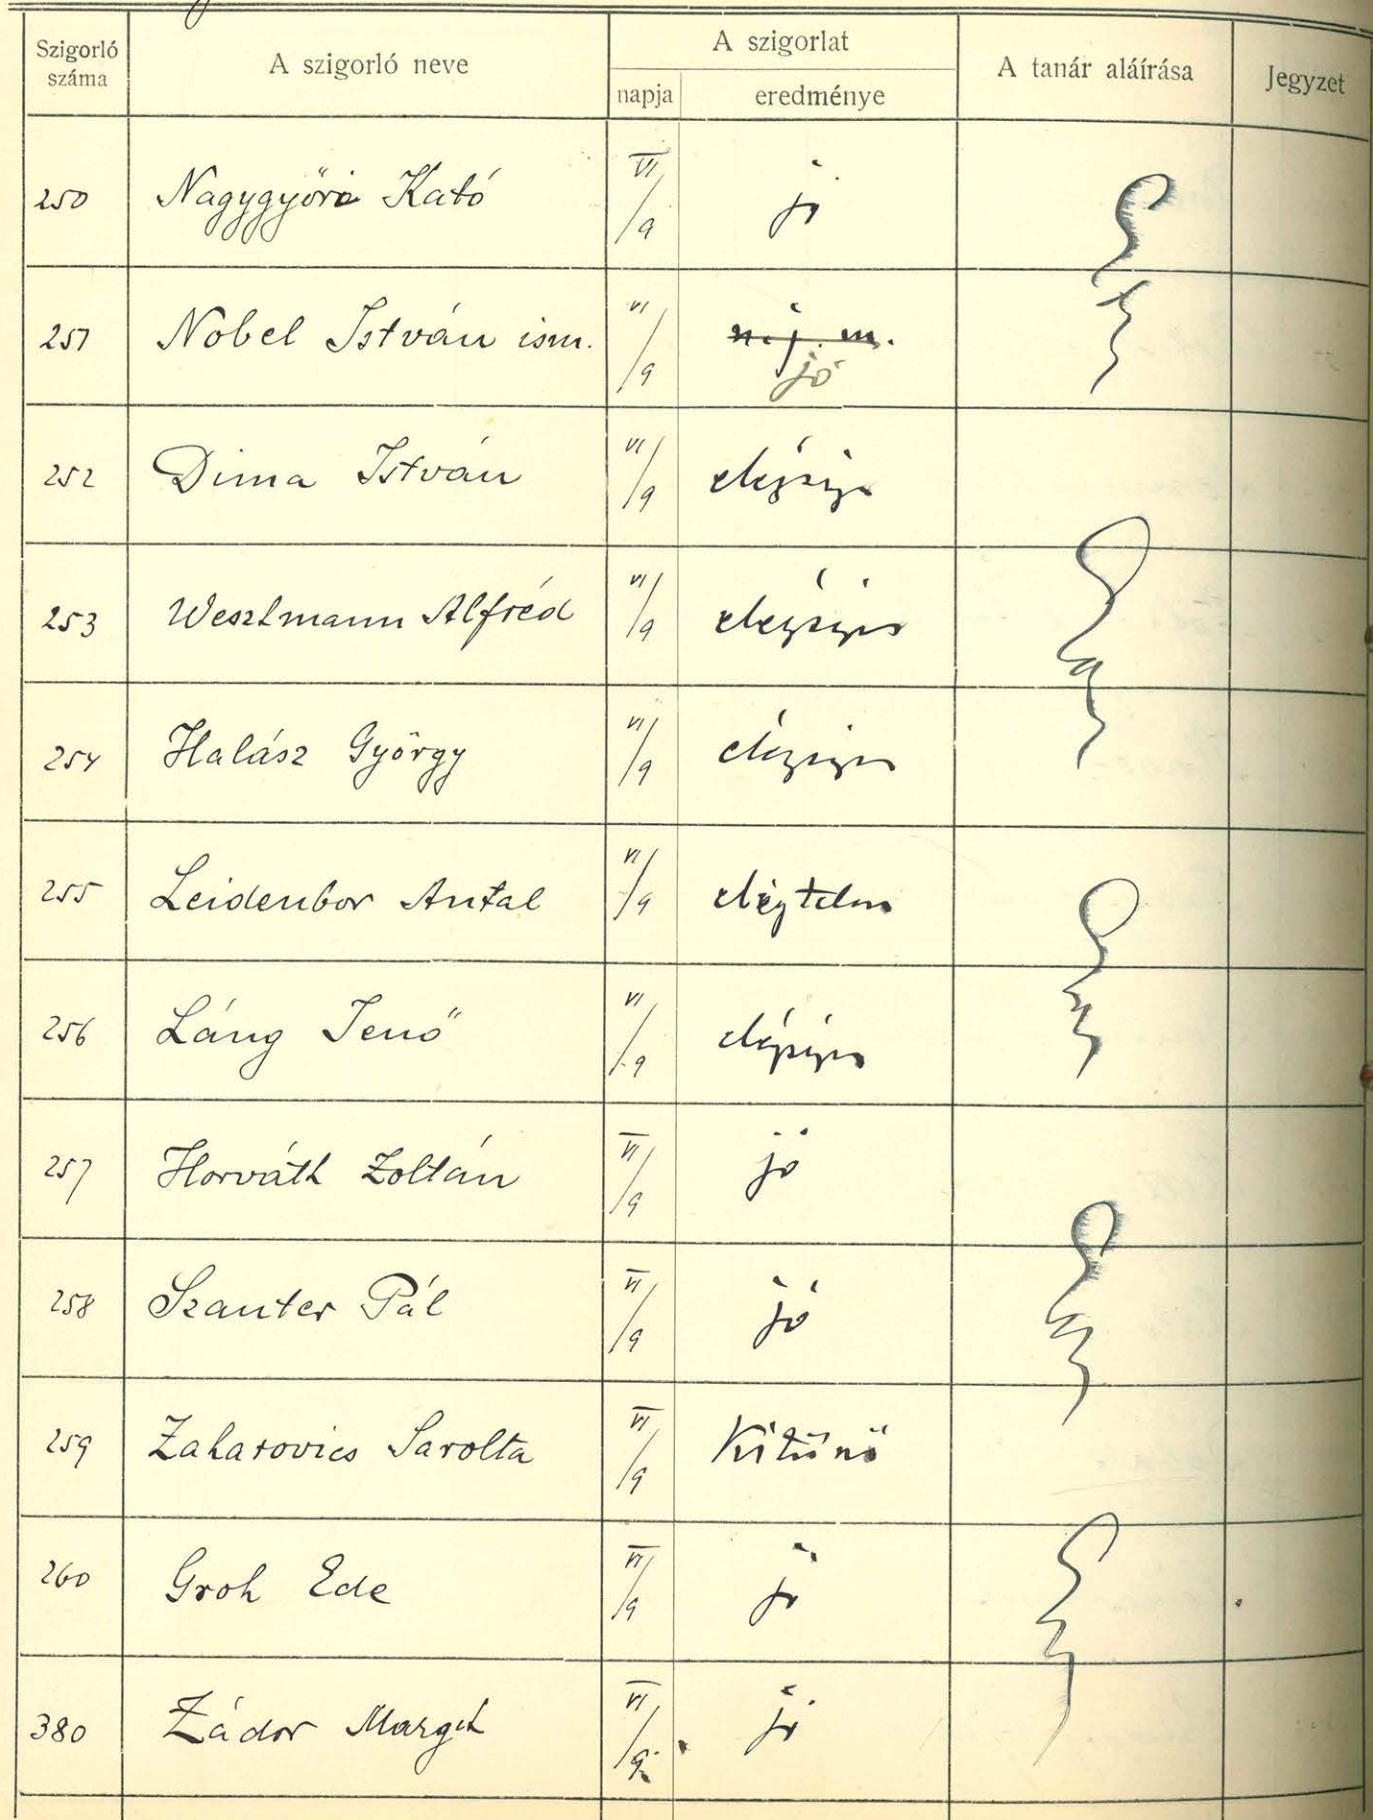 Szigorló száma A szigorló neve A szigorlat A tanár aláírása Jegyzet
napja eredménye
250 Nagygyőri Kató VI/9 jó
251 Nobel István ism. VI/9 n. j. m.
jó
252 Dima István VI/9 elégséges
253 Wesztmann Alfréd VI/9 elégséges
254 Halász György VI/9 elégséges
255 Leidenbor Antal VI/9 elégtelen
256 Láng Jenő VI/9 elégséges
257 Horváth Zoltán VI/9 jó
258 Szanter Pál VI/9 jó
259 Zaharovics Sarolta VI/9 Kitűnő
260 Groh Ede VI/9 jó
380 Zádor Margit VI/9 jó